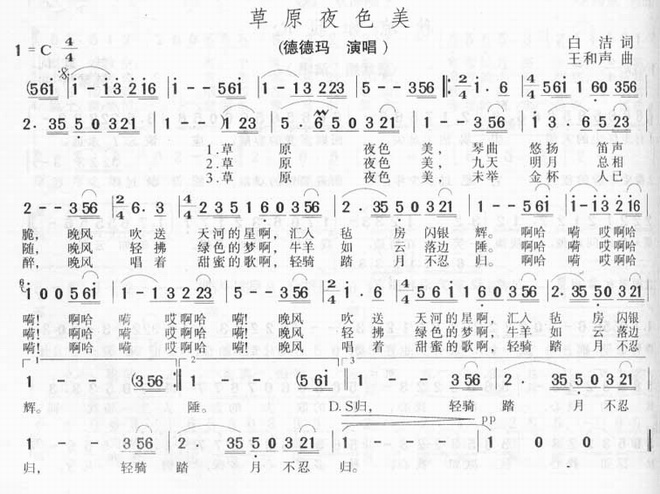 草原夜色美
1=C 4/4 (德德玛 演唱) 白洁 词
王和声 曲
(561 | 1 - 13 216 | 1 - - 561 | 1 - 13 223 | 5 - - 356 |: 2/4 1·6 | 4/4 561 160 356 |
2· 35 50321 | 1 - - 1) 123 | 5· 650321 | 2 - - 123 | 5 - 165 | 13· 6523 |
1.草 原 夜色 美, 琴曲 悠扬 笛声
2.草 原 夜色 美, 九天 明月 总相
3.草 原 夜色 美, 未举 金杯 人已
2 - - 356 | 2/4 6·3 | 4/4 2351 6356 | 2· 350321 | 1 - - 561 | 1 - 13 216 |
脆, 晚风 吹送 天河的星啊,汇入 毡 房 闪银 辉。 啊哈 嗬 哎啊哈
随, 晚风 轻拂 绿色的梦啊,牛羊 如 云 落边 陲。 啊哈 嗬 哎啊哈
醉, 晚风 唱着 甜蜜的歌啊,轻骑 踏 月 不忍 归。 啊哈 嗬 哎啊哈
1 0 0 561 | 1 - 13 223 | 5 - - 356 | 2/4 6·3 | 4/4 2351 6356 | 2· 350321 |
嗬! 啊哈 嗬 哎啊哈 嗬! 晚风 吹送 天河的星啊,汇入 毡 房 闪银
嗬! 啊哈 嗬 哎啊哈 嗬! 晚风 轻拂 绿色的梦啊,牛羊 如 云 落边
嗬! 啊哈 嗬 哎啊哈 嗬! 晚风 唱着 甜蜜的歌啊,轻骑 踏 月 不忍
1 2 3
1 - - (356 :| 1 - - (561 | 1 - - 356 | 2· 350321 |
辉。 陲。 D.S归, 轻骑 踏 月 不忍
pp
1 - - 356 | 2· 350321 | 1 - - - | 1 0 0 0 |
归, 轻骑 踏 月 不忍 归。